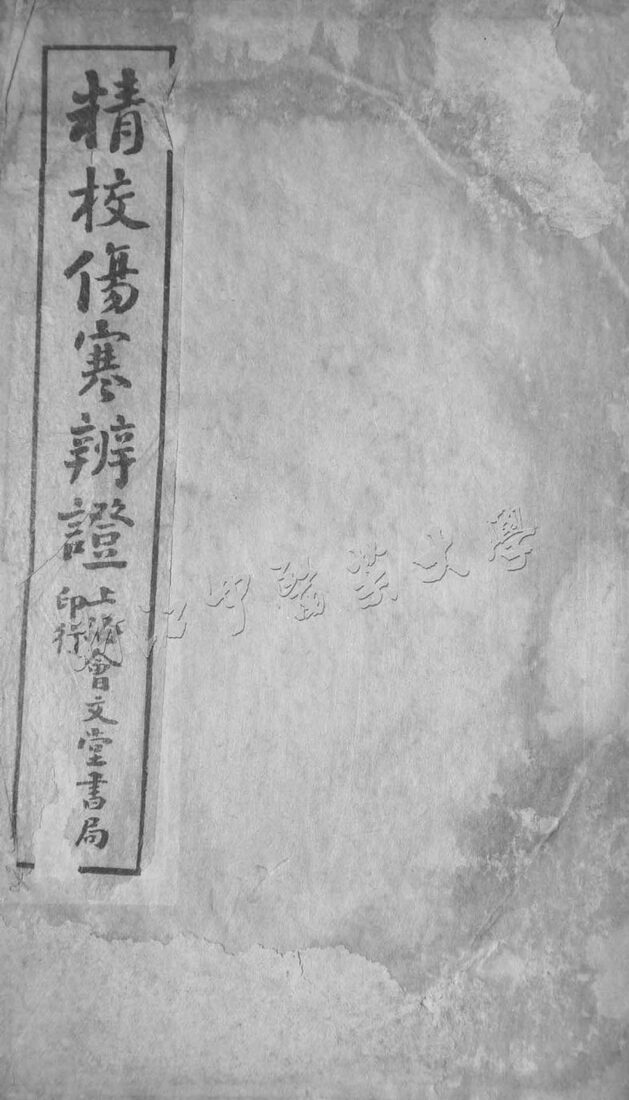 精校傷寒辨證
上海會文堂書局
印行
中醫藥大學